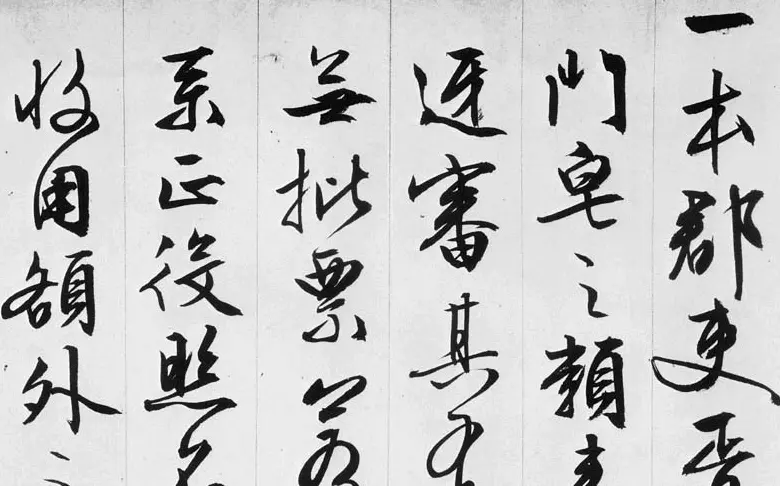 一本郡吏晋
門皂之類
逐審其有
無批票
系正役照名
收用額外之